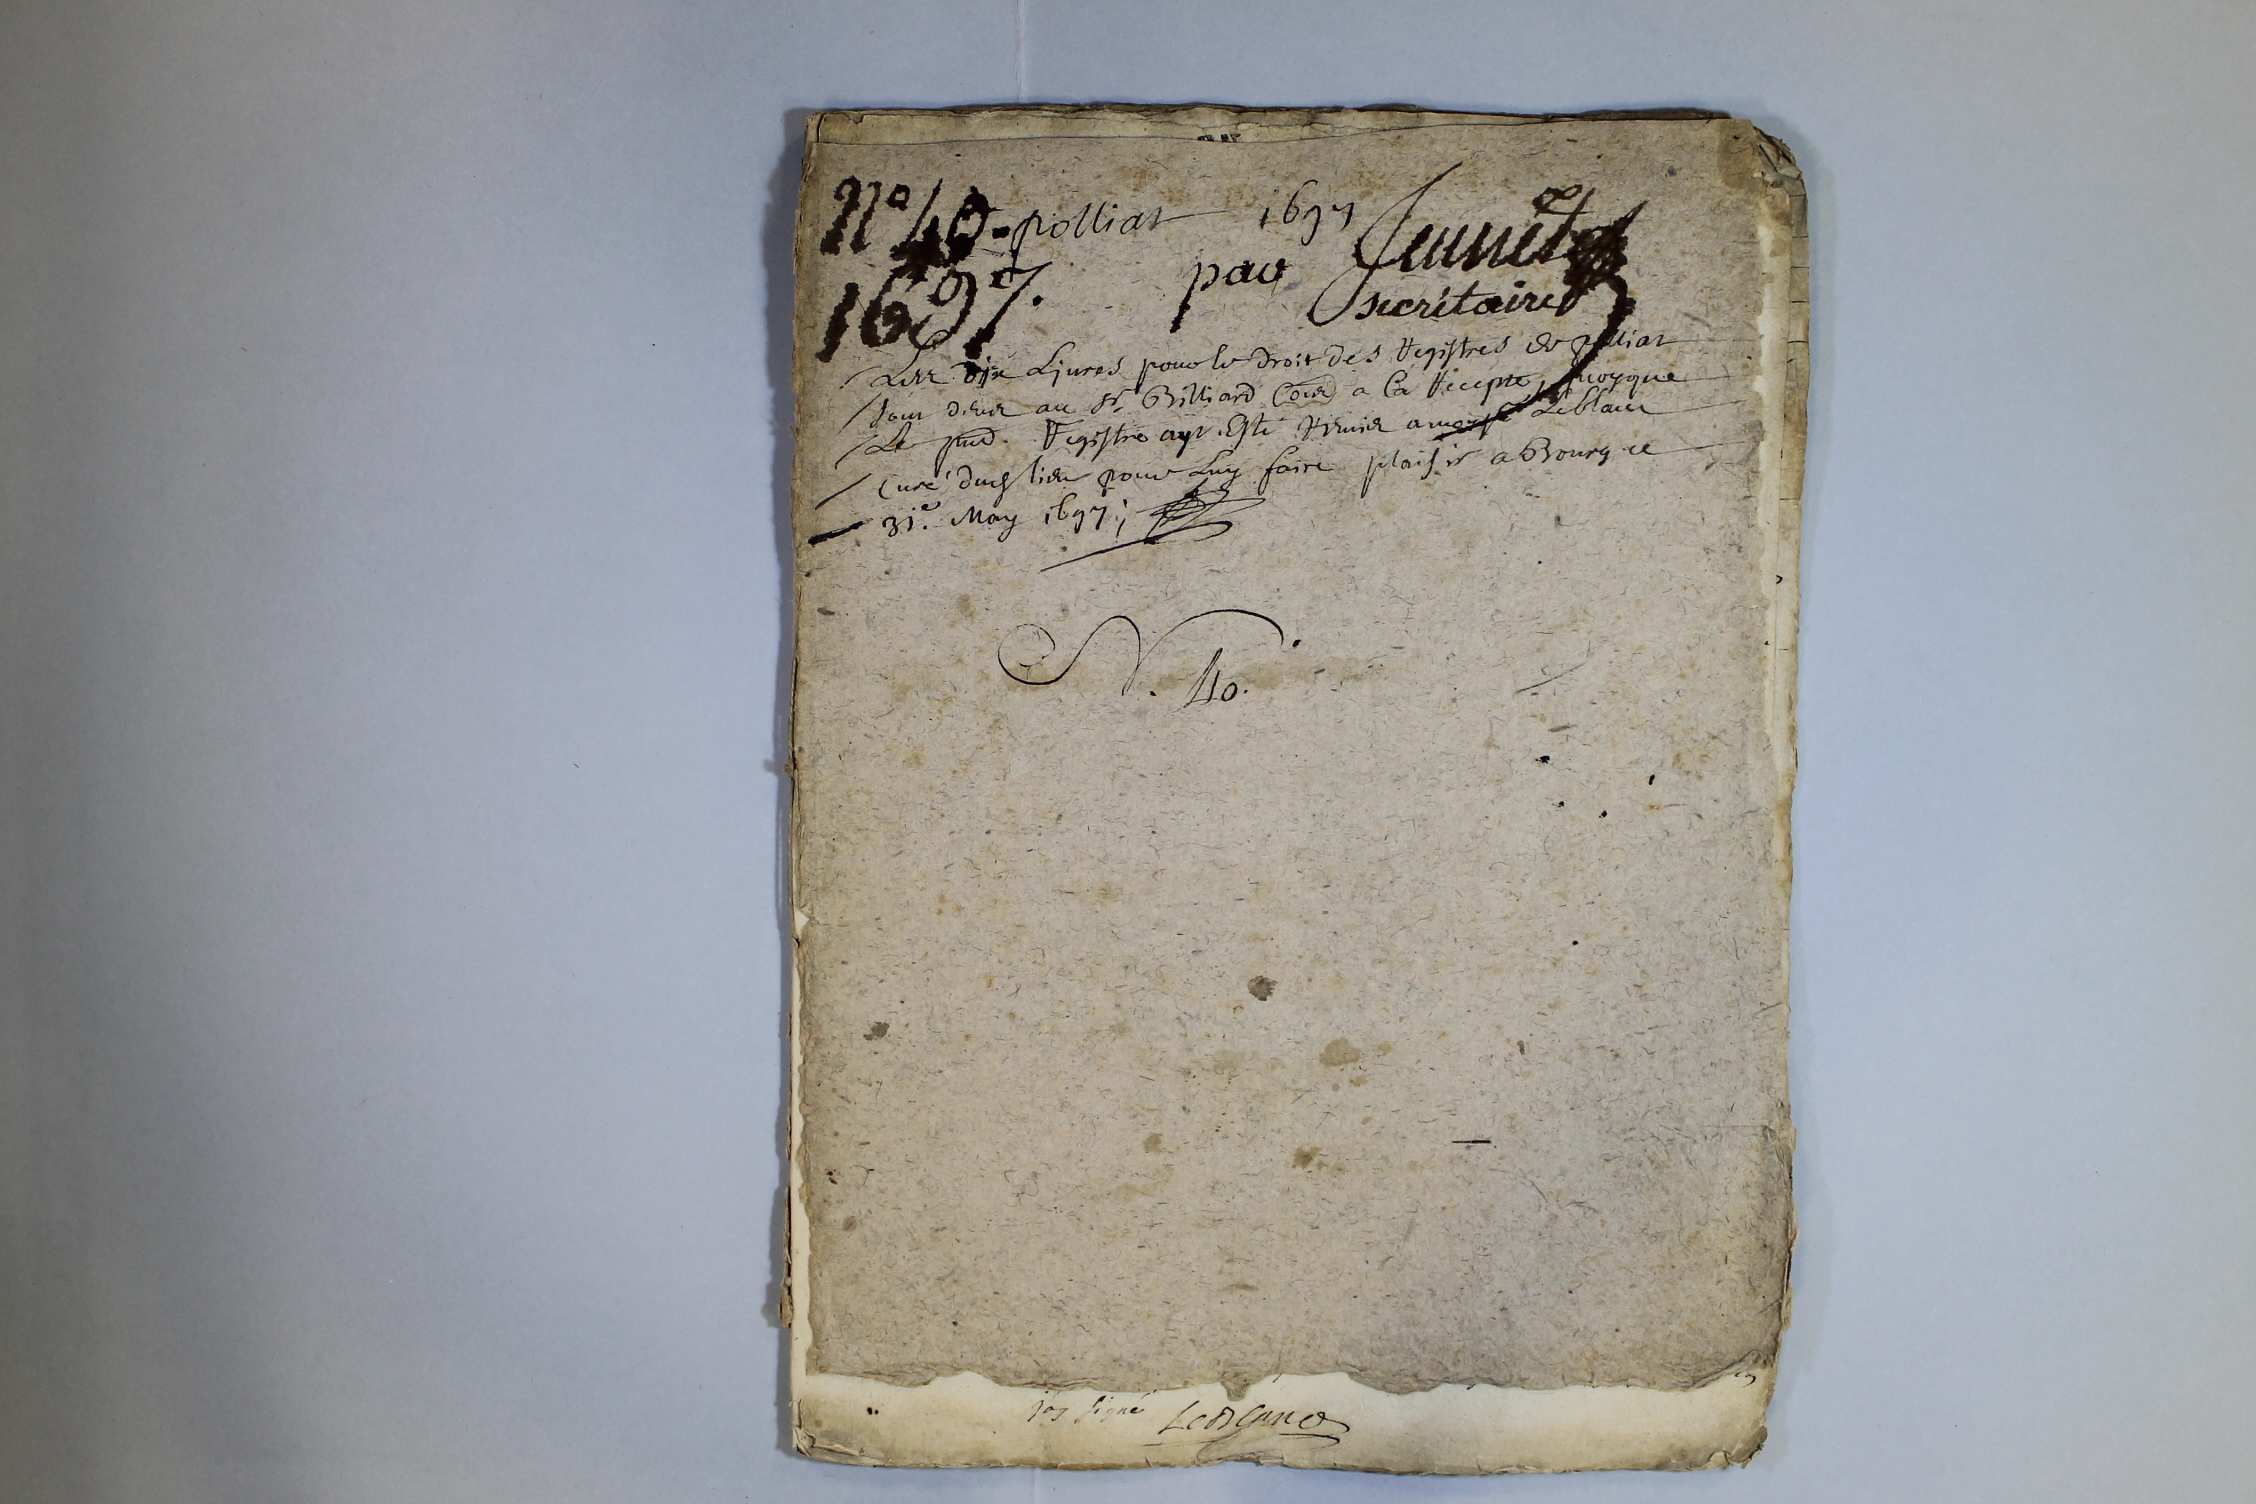 N° 40 - polliat 1697
1697. par Jeunet
secrétaire
Les dix Liures pour le droit des Registres de polliat
sont deue au Sr. Billiard Com a la Recepte, quoyque
Le pnt. Registre ayt Esté Remis a Leblanc
Curé dud lieu pour Luy faire plaisir a Bourg ce
31e. May 1697;
N. 40.
j'ay signé LeBlanc